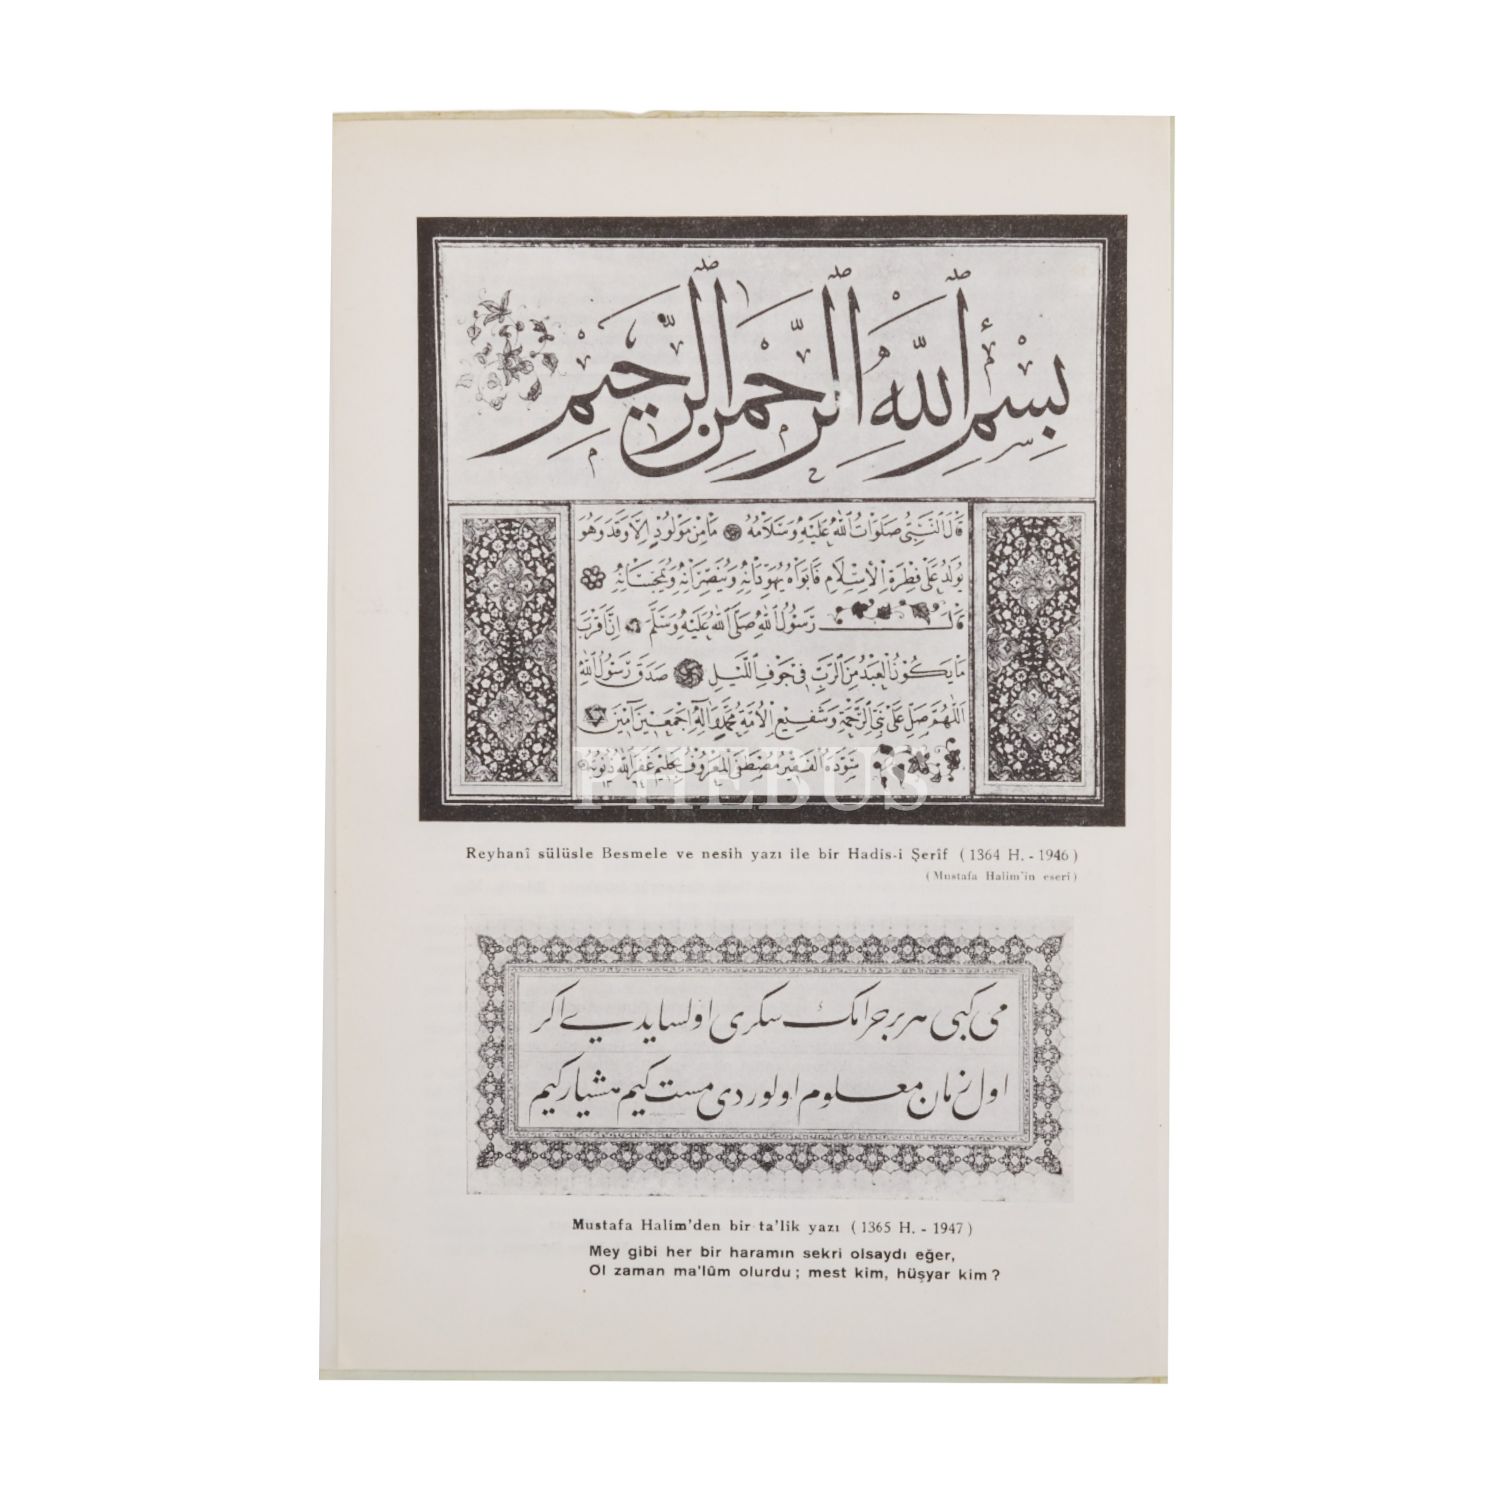 بِسْمِ ٱللَّهِ ٱلرَّحْمٰنِ ٱلرَّحِيمِ
قَالَ النَّبِيُّ صَلَوَاتُ اللّٰهِ عَلَيْهِ وَسَلَامُهُ مَا مِنْ مَوْلُودٍ اِلَّا وَقَدْ وَهُوَ
يُولَدُ عَلَى فِطْرَةِ الْاِسْلَامِ فَاَبَوَاهُ يُهَوِّدَانِهِ وَيُنَصِّرَانِهِ وَيُمَجِّسَانِهِ
قَالَ رَسُولُ اللّٰهِ صَلَّى اللّٰهُ عَلَيْهِ وَسَلَّمَ اِنَّ اَقْرَبَ
مَا يَكُونُ الْعَبْدُ مِنَ الرَّبِّ فِي جَوْفِ اللَّيْلِ صَدَقَ رَسُولُ اللّٰهِ
اَللّٰهُمَّ صَلِّ عَلَى نَبِيِّ الرَّحْمَةِ وَشَفِيعِ الْاُمَّةِ مُحَمَّدٍ وَاٰلِهِ اَجْمَعِينَ اٰمِينَ
سَوَّدَهُ الْفَقِيرُ مُصْطَفَى الْمَعْرُوفُ بِحَلِيمْ غَفَرَ اللّٰهُ ذُنُوبَهُ
١٣٦٤
PHEBUS
Reyhanî sülüsle Besmele ve nesih yazı ile bir Hadis-i Şerîf (1364 H. - 1946)
(Mustafa Halim'in eseri)
می کبی هر بر حرامك سکری اولسایدی اکر
اول زمان معلوم اولوردی مست کیم هشیار کیم
Mustafa Halim'den bir ta'lik yazı (1365 H. - 1947)
Mey gibi her bir haramın sekri olsaydı eğer,
Ol zaman ma'lûm olurdu; mest kim, hüşyar kim?